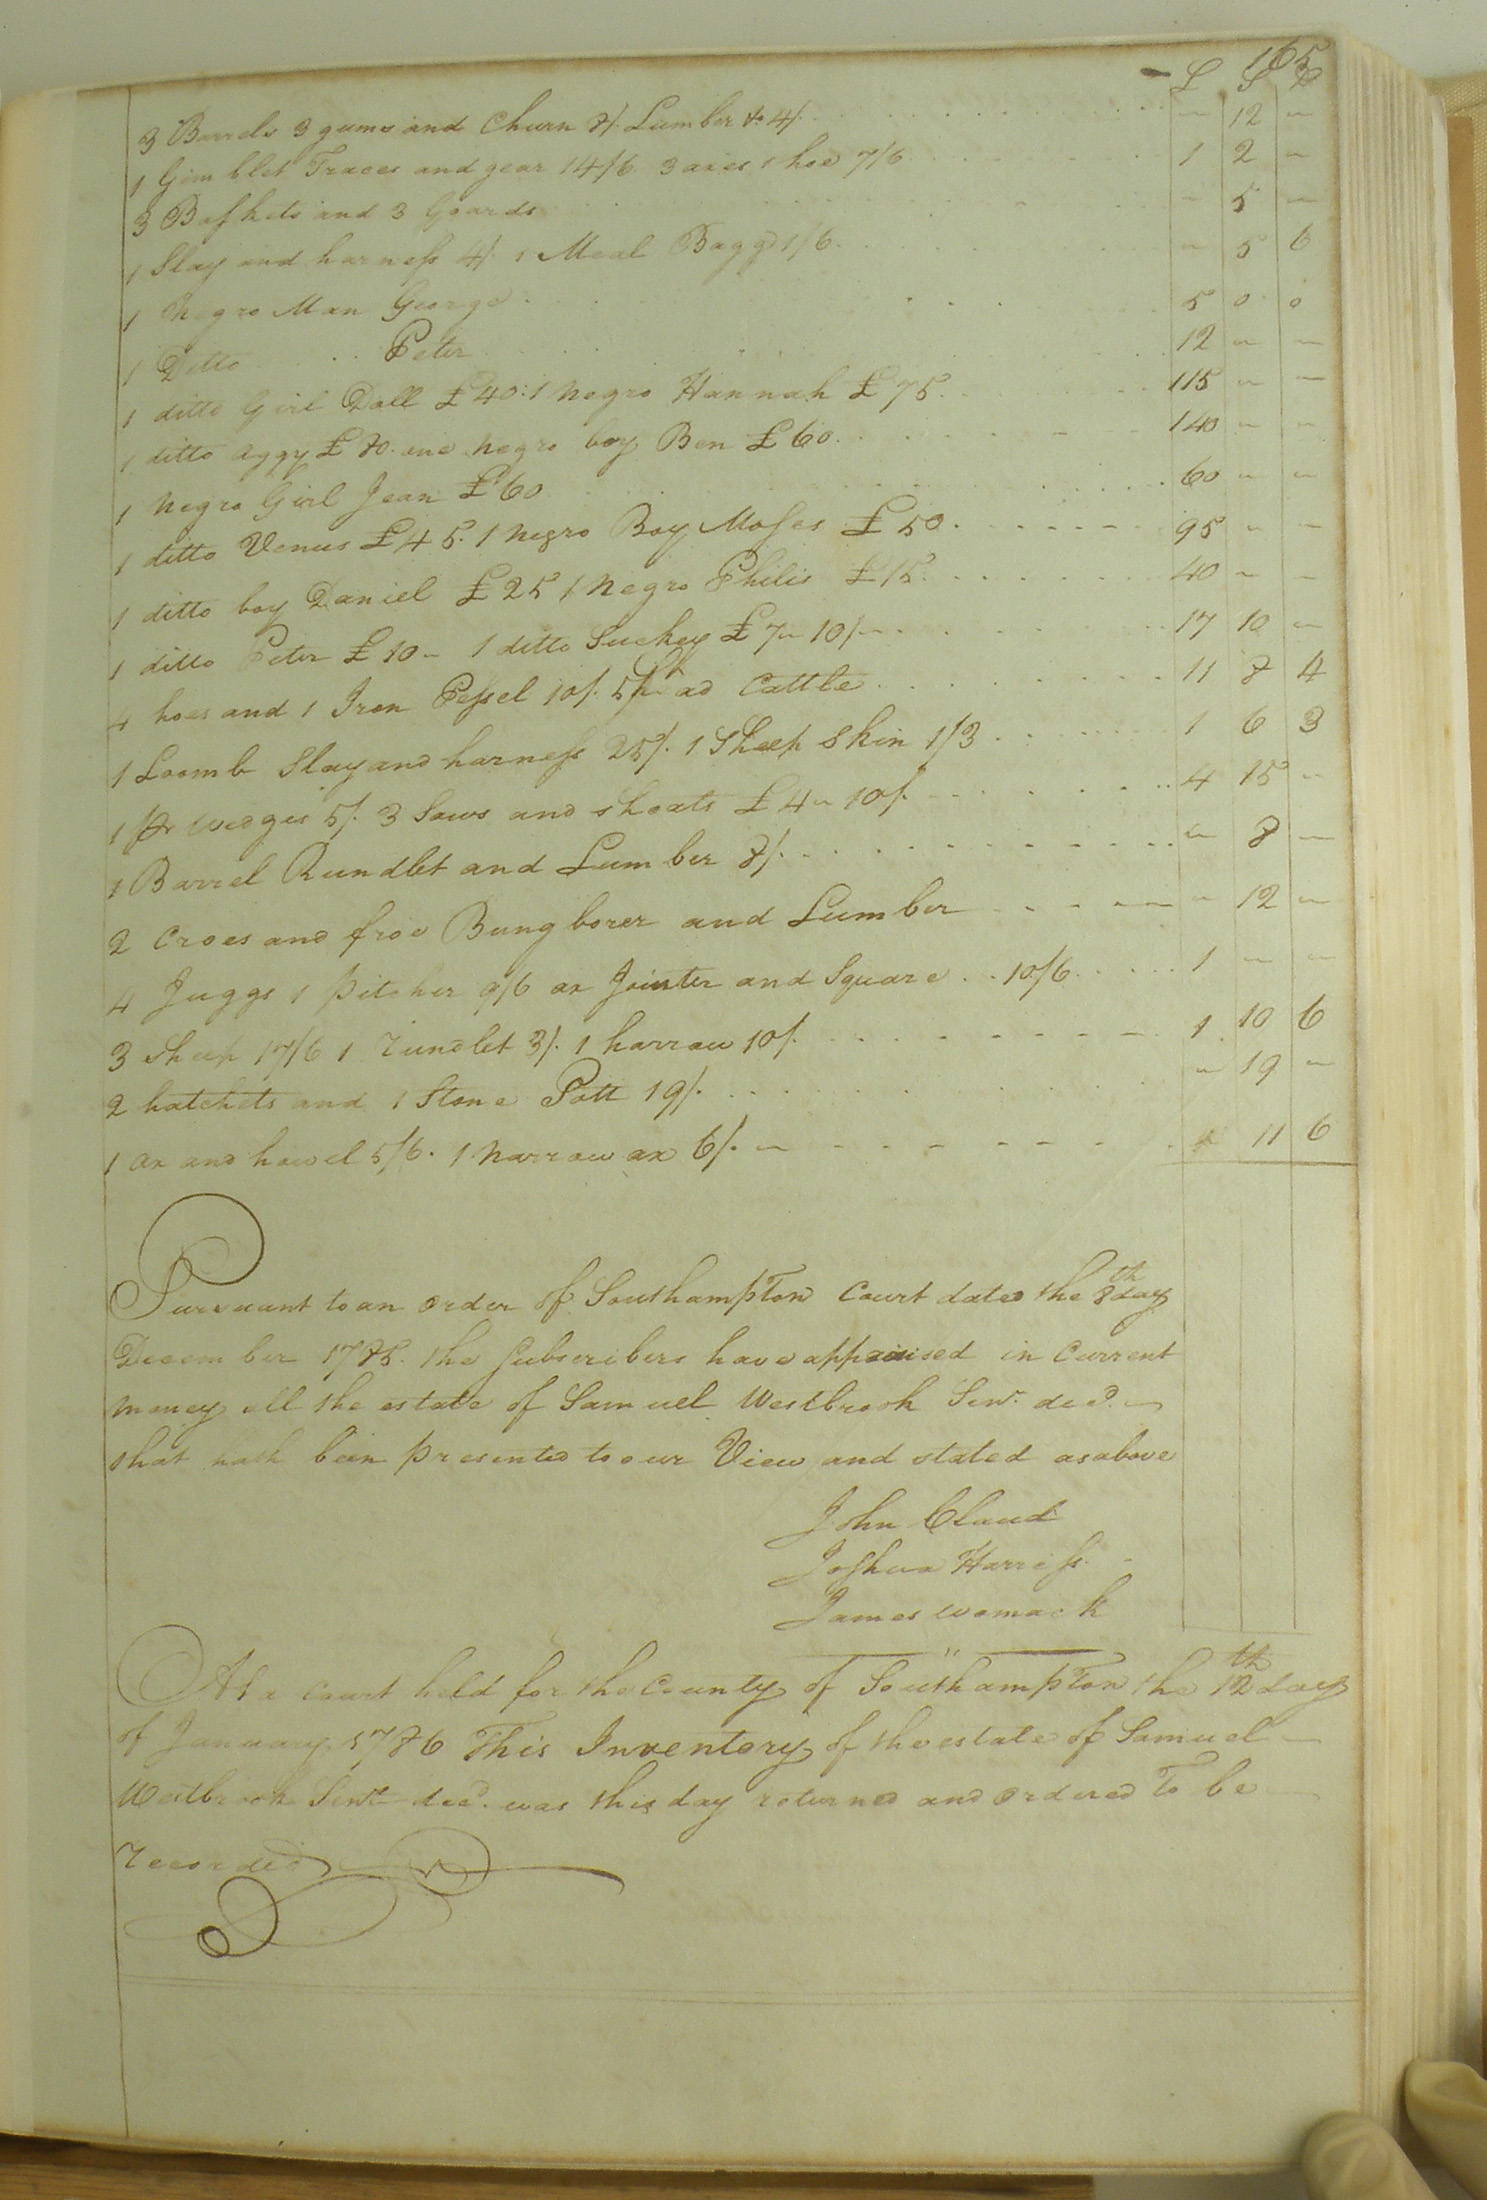 165
L S D
3 Barrels 3 gums and Churn 8/. Lumber &c 4/. - 12 -
1 Gimblet Traces and gear 14/6 3 axes 1 hoe 7/6 1 2 -
3 Baskets and 3 Goards - 5 -
1 Slay and harness 4/. 1 Meal Bagg 1/6 - 5 6
1 Negro Man George 5 0 0
1 Ditto Peter 12 - -
1 ditto Girl Doll £40: 1 Negro Hannah £75 115 - -
1 ditto Aggy £80. one negro boy Ben £60 140 - -
1 Negro Girl Jean £60 60 - -
1 ditto Venus £45. 1 Negro Boy Moses £50 95 - -
1 ditto boy Daniel £25 1 Negro Philis £15 40 - -
1 ditto Peter £10 - 1 ditto Suckey £7 - 10/- 17 10 -
4 hoes and 1 Iron Pessel 10/. 5 ad Cattle 11 8 4
1 Loomb Slay and harness 25/. 1 Sheep Skin 1/3 1 6 3
1 pr wedges 5/. 3 Sows and shoats £4 - 10/. 4 15 -
1 Barrel Rundlet and Lumber 8/. - 8 -
2 Croes and froe Bung borer and Lumber - 12 -
4 Juggs 1 pitcher 9/6 ax Jointer and Square 10/6 1 - -
3 sheep 17/6 1 rundlet 3/. 1 harrow 10/. 1 10 6
2 hatchets and 1 Stone Pott 19/. - 19 -
1 ax and howel 5/6. 1 Narrow ax 6/. - 11 6
Pursuant to an order of Southampton Court dated the 8th day
December 1785. the Subscribers have appraised in Current
money all the estate of Samuel Westbrook Senr. decd.
that hath been presented to our View and stated as above
John Claud
Joshua Harriss
James Womack
At a Court held for the County of Southampton the 12th day
of January 1786 This Inventory of the estate of Samuel
Westbrook Senr. decd. was this day returned and ordered To be
recorded